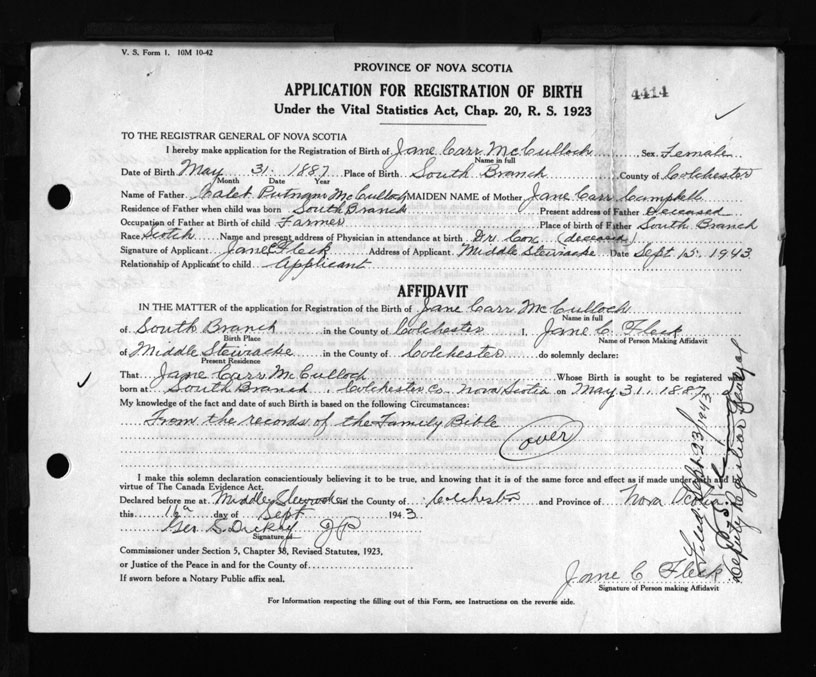 V. S. Form 1. 10M 10-42
PROVINCE OF NOVA SCOTIA
APPLICATION FOR REGISTRATION OF BIRTH
4414
Under the Vital Statistics Act, Chap. 20, R. S. 1923
TO THE REGISTRAR GENERAL OF NOVA SCOTIA
I hereby make application for the Registration of Birth of Jane Carr McCulloch Sex Female
Name in full
Date of Birth May 31 1887 Place of Birth South Branch County of Colchester
Month Date Year
Name of Father Putnam McCulloch MAIDEN NAME of Mother Jane Carr Campbell
Residence of Father when child was born South Branch Present address of Father Deceased
Occupation of Father at Birth of child Farmer Place of birth of Father South Branch
Race Scotch Name and present address of Physician in attendance at birth Dr Cox (deceased)
Signature of Applicant Jane C Fleck Address of Applicant Middle Stewiacke Date Sept 15. 1943
Relationship of Applicant to child Applicant
AFFIDAVIT
IN THE MATTER of the application for Registration of the Birth of Jane Carr McCulloch
Name in full
of South Branch in the County of Colchester I, Jane C. Fleck
Birth Place Name of Person Making Affidavit
of Middle Stewiacke in the County of Colchester do solemnly declare:
Present Residence
That Jane Carr McCulloch Whose Birth is sought to be registered was
born at South Branch Colchester Co Nova Scotia on May 31. 1887
My knowledge of the fact and date of such Birth is based on the following Circumstances:
From the records of the Family Bible
over
I make this solemn declaration conscientiously believing it to be true, and knowing that it is of the same force and effect as if made under oath and by
virtue of The Canada Evidence Act.
Declared before me at Middle Stewiacke in the County of Colchester and Province of Nova Scotia
this 16 day of Sept 1943
Geo S. Dickey J P
Signature of
Commissioner under Section 5, Chapter 38, Revised Statutes, 1923,
or Justice of the Peace in and for County of
If sworn before a Notary Public affix seal.
Jane C Fleck
Signature of Person making Affidavit
For Information respecting the filling out of this Form, see Instructions on the reverse side.
Filed Sept 23/1943
Deputy Registrar General